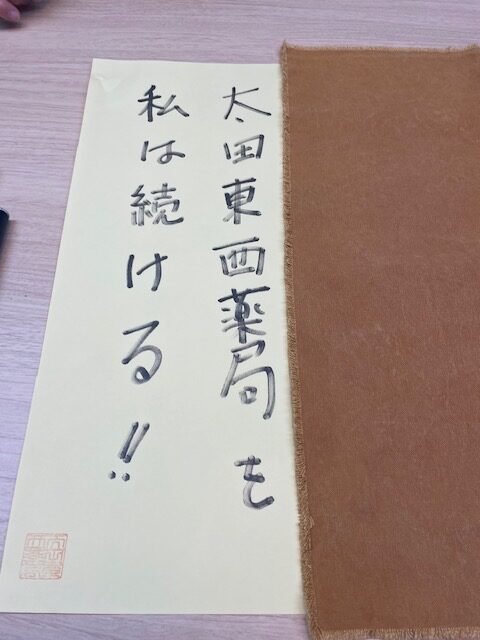 太田東西薬局を
私は続ける!!